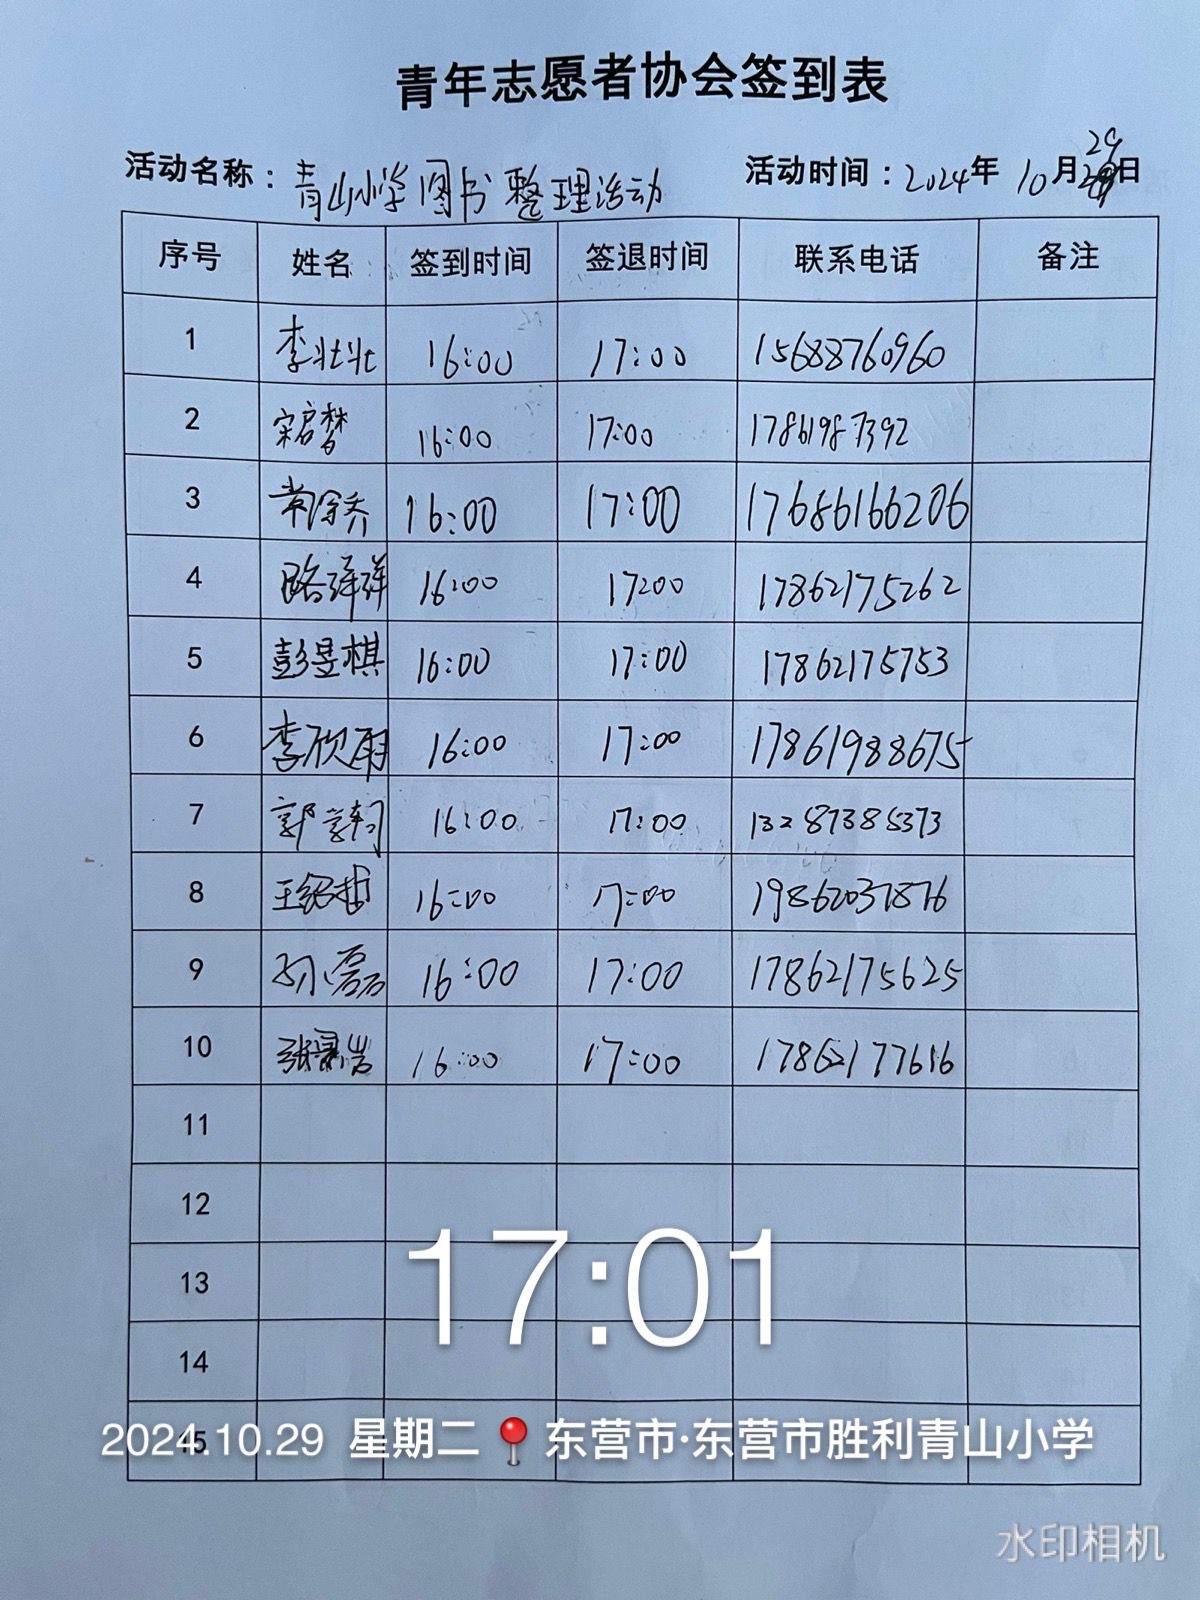 青年志愿者协会签到表
活动名称：青山小学图书整理活动 活动时间：2024年 10月29日
序号 姓名 签到时间 签退时间 联系电话 备注
1 李壮壮 16:00 17:00 15688760960
2 宋启梦 16:00 17:00 17861987392
3 常涂乔 16:00 17:00 17686166206
4 路祥祥 16:00 17:00 17862175262
5 彭昱棋 16:00 17:00 17862175753
6 李欣雨 16:00 17:00 17861988675
7 郭学轲 16:00 17:00 13287385373
8 王绍哲 16:00 17:00 19862037876
9 孙磊 16:00 17:00 17862175625
10 16:00 17:00 17862177616
11
12
13
14
15
17:01
2024.10.29 星期二 东营市·东营市胜利青山小学
水印相机